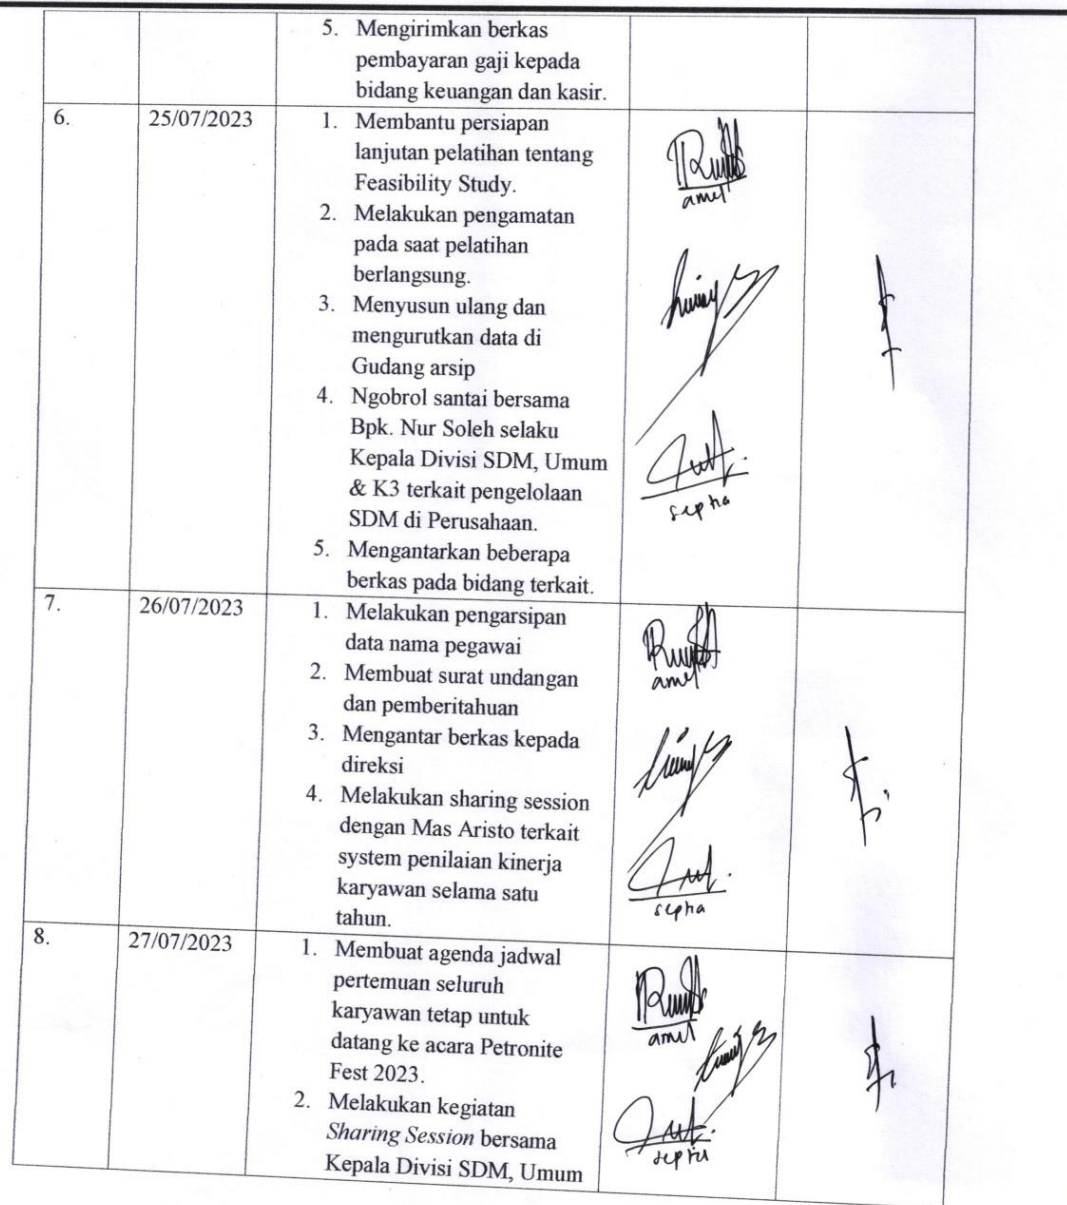 5. Mengirimkan berkas
pembayaran gaji kepada
bidang keuangan dan kasir.
6. 25/07/2023 1. Membantu persiapan
lanjutan pelatihan tentang
Feasibility Study.
2. Melakukan pengamatan
pada saat pelatihan
berlangsung.
3. Menyusun ulang dan
mengurutkan data di
Gudang arsip
4. Ngobrol santai bersama
Bpk. Nur Soleh selaku
Kepala Divisi SDM, Umum
& K3 terkait pengelolaan
SDM di Perusahaan.
5. Mengantarkan beberapa
berkas pada bidang terkait.
amel
septia
7. 26/07/2023 1. Melakukan pengarsipan
data nama pegawai
2. Membuat surat undangan
dan pemberitahuan
3. Mengantar berkas kepada
direksi
4. Melakukan sharing session
dengan Mas Aristo terkait
system penilaian kinerja
karyawan selama satu
tahun.
amel
septia
8. 27/07/2023 1. Membuat agenda jadwal
pertemuan seluruh
karyawan tetap untuk
datang ke acara Petronite
Fest 2023.
2. Melakukan kegiatan
Sharing Session bersama
Kepala Divisi SDM, Umum
amel
septia